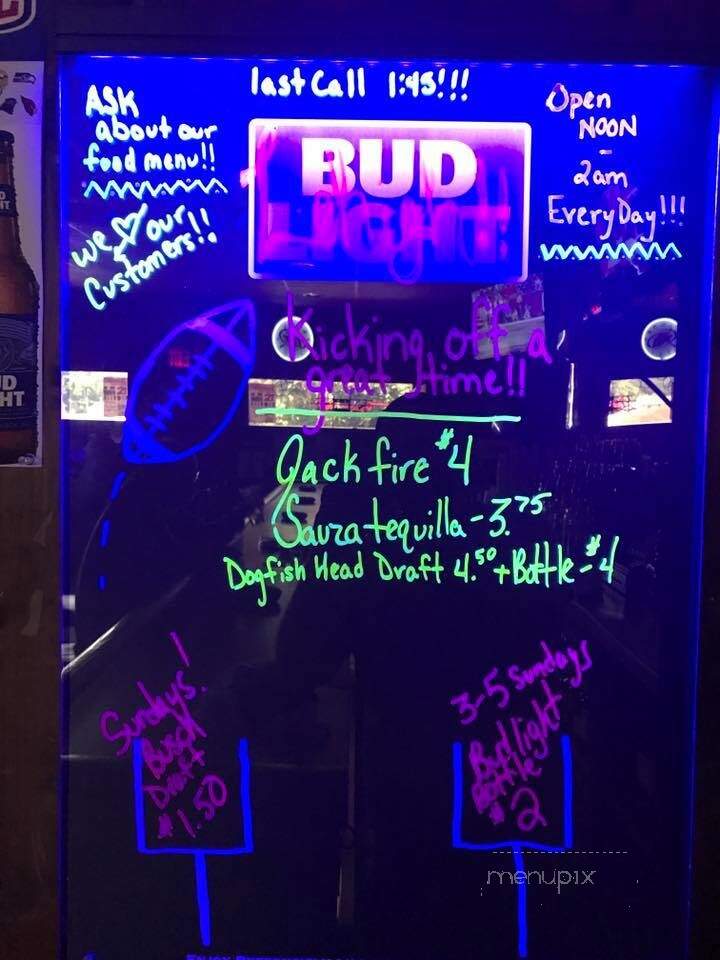 last Call 1:45!!!
ASK
about our
food menu!!
we ♡ our
Customers!!
Open
NOON
-
2am
EveryDay!!!
BUD
LIGHT
Kicking off a
great time!!
Jack fire $4
Sauza tequilla - 3.75
Dogfish Head Draft 4.50 + Bottle - $4
Sundays!
Busch
Draft
$1.50
3-5 Sundays
Bud light
Bottle
$2
menupix
UD
HT